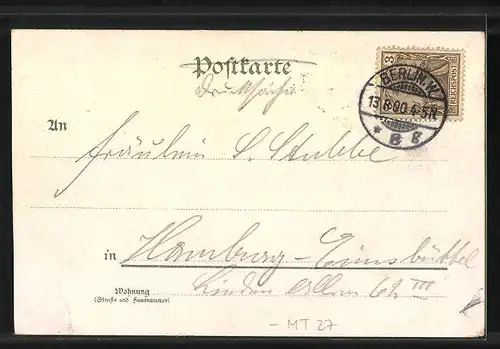 Postkarte
Drucksache
3
REICHSPOST
BERLIN, W.
13.8.00.4-5N
* 8 g
An
Fräulein S. Stubbe
in
Hamburg-Eimsbüttel
Wohnung
(Straße und Hausnummer)
Linden Allee 62 III
- MT 27